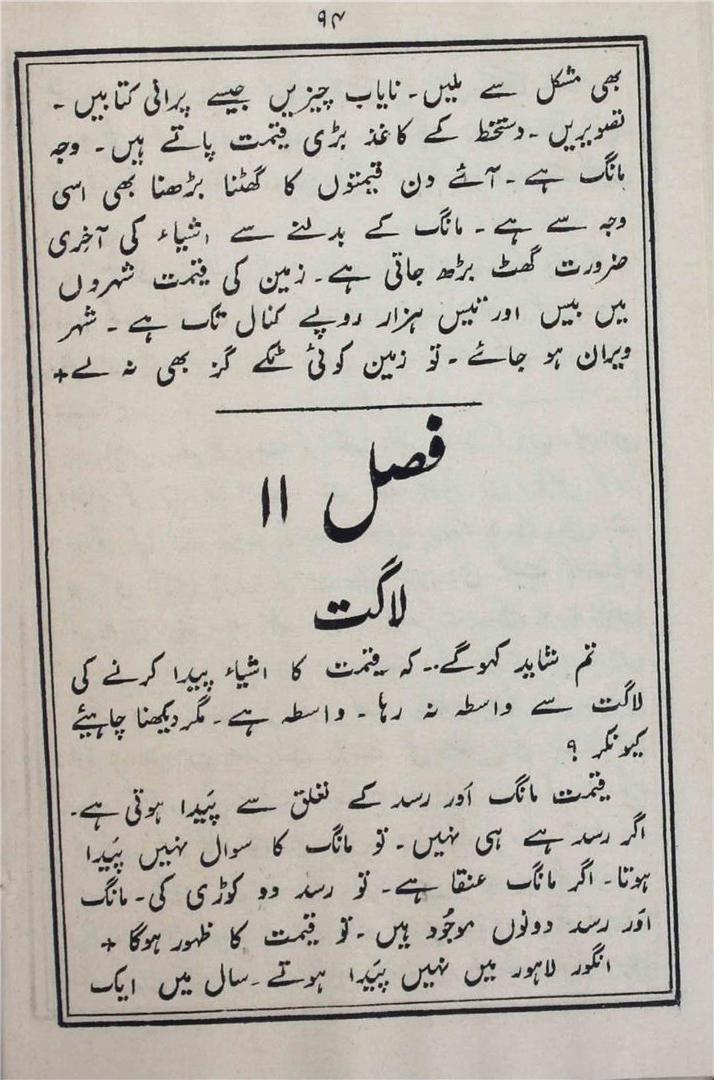 ۹۴
بھی مشکل سے ملیں۔ نایاب چیزیں جیسے پرانی کتابیں۔
تصویریں۔ دستخط کے کاغذ بڑی قیمت پاتے ہیں۔ وجہ
مانگ ہے۔ آئے دن قیمتوں کا گھٹنا بڑھنا بھی اسی
وجہ سے ہے۔ مانگ کے بدلنے سے اشیاء کی آخری
ضرورت گھٹ بڑھ جاتی ہے۔ زمین کی قیمت شہروں
میں بیس اور تیس ہزار روپے کنال تک ہے۔ شہر
ویران ہو جائے۔ تو زمین کوئی ٹکے گز بھی نہ لے+
فصل ۱۱
لاگت
تم شاید کہو گے۔ کہ قیمت کا اشیاء پیدا کرنے کی
لاگت سے واسطہ نہ رہا۔ واسطہ ہے۔ مگر دیکھنا چاہیئے
کیونکر ؟
قیمت مانگ اَور رسد کے تعلق سے پَیدا ہوتی ہے۔
اگر رسد ہے ہی نہیں۔ تو مانگ کا سوال نہیں پَیدا
ہوتا۔ اگر مانگ عنقا ہے۔ تو رسد دو کوڑی کی۔ مانگ
اَور رسد دونوں موجُود ہیں۔ تو قیمت کا ظہور ہوگا +
انگور لاہور میں نہیں پَیدا ہوتے۔ سال میں ایک